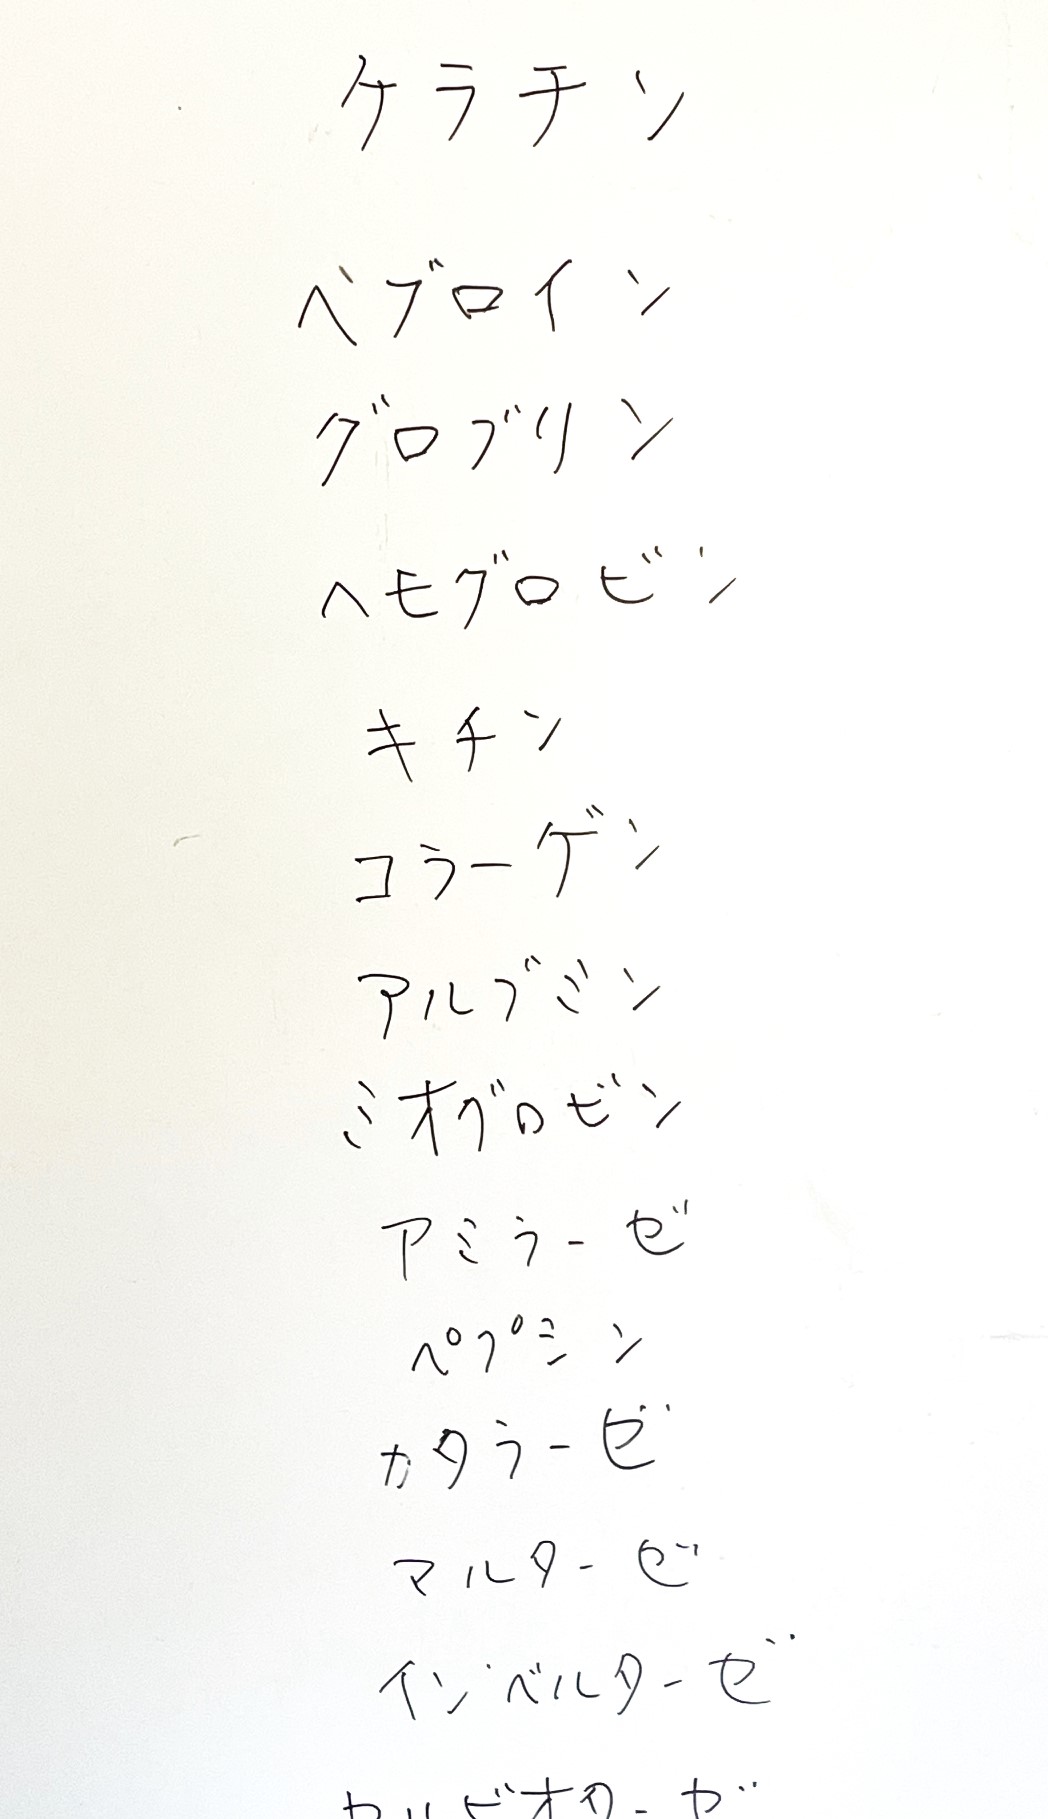 ケラチン
ベブロイン
グロブリン
ヘモグロビン
キチン
コラーゲン
アルブミン
ミオグロビン
アミラーゼ
ペプシン
カタラーゼ
マルターゼ
インベルターゼ